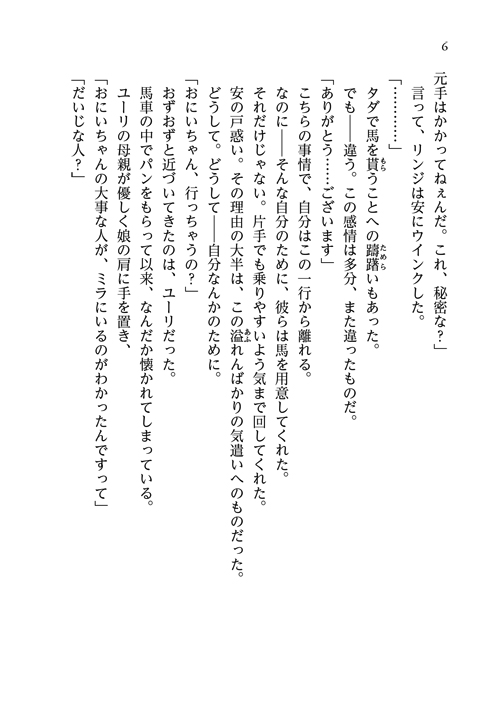 6
元手はかかってねぇんだ。これ、秘密な？」
言って、リンジは安にウインクした。
「…………」
タダで馬を貰うことへの躊躇いもあった。
でも――違う。この感情は多分、また違ったものだ。
「ありがとう……ございます」
こちらの事情で、自分はこの一行から離れる。
なのに――そんな自分のために、彼らは馬を用意してくれた。
それだけじゃない。片手でも乗りやすいよう気まで回してくれた。
安の戸惑い。その理由の大半は、この溢れんばかりの気遣いへのものだった。
どうして。どうして――自分なんかのために。
「おにいちゃん、行っちゃうの？」
おずおずと近づいてきたのは、ユーリだった。
馬車の中でパンをもらって以来、なんだか懐かれてしまっている。
ユーリの母親が優しく娘の肩に手を置き、
「おにいちゃんの大事な人が、ミラにいるのがわかったんですって」
「だいじな人？」